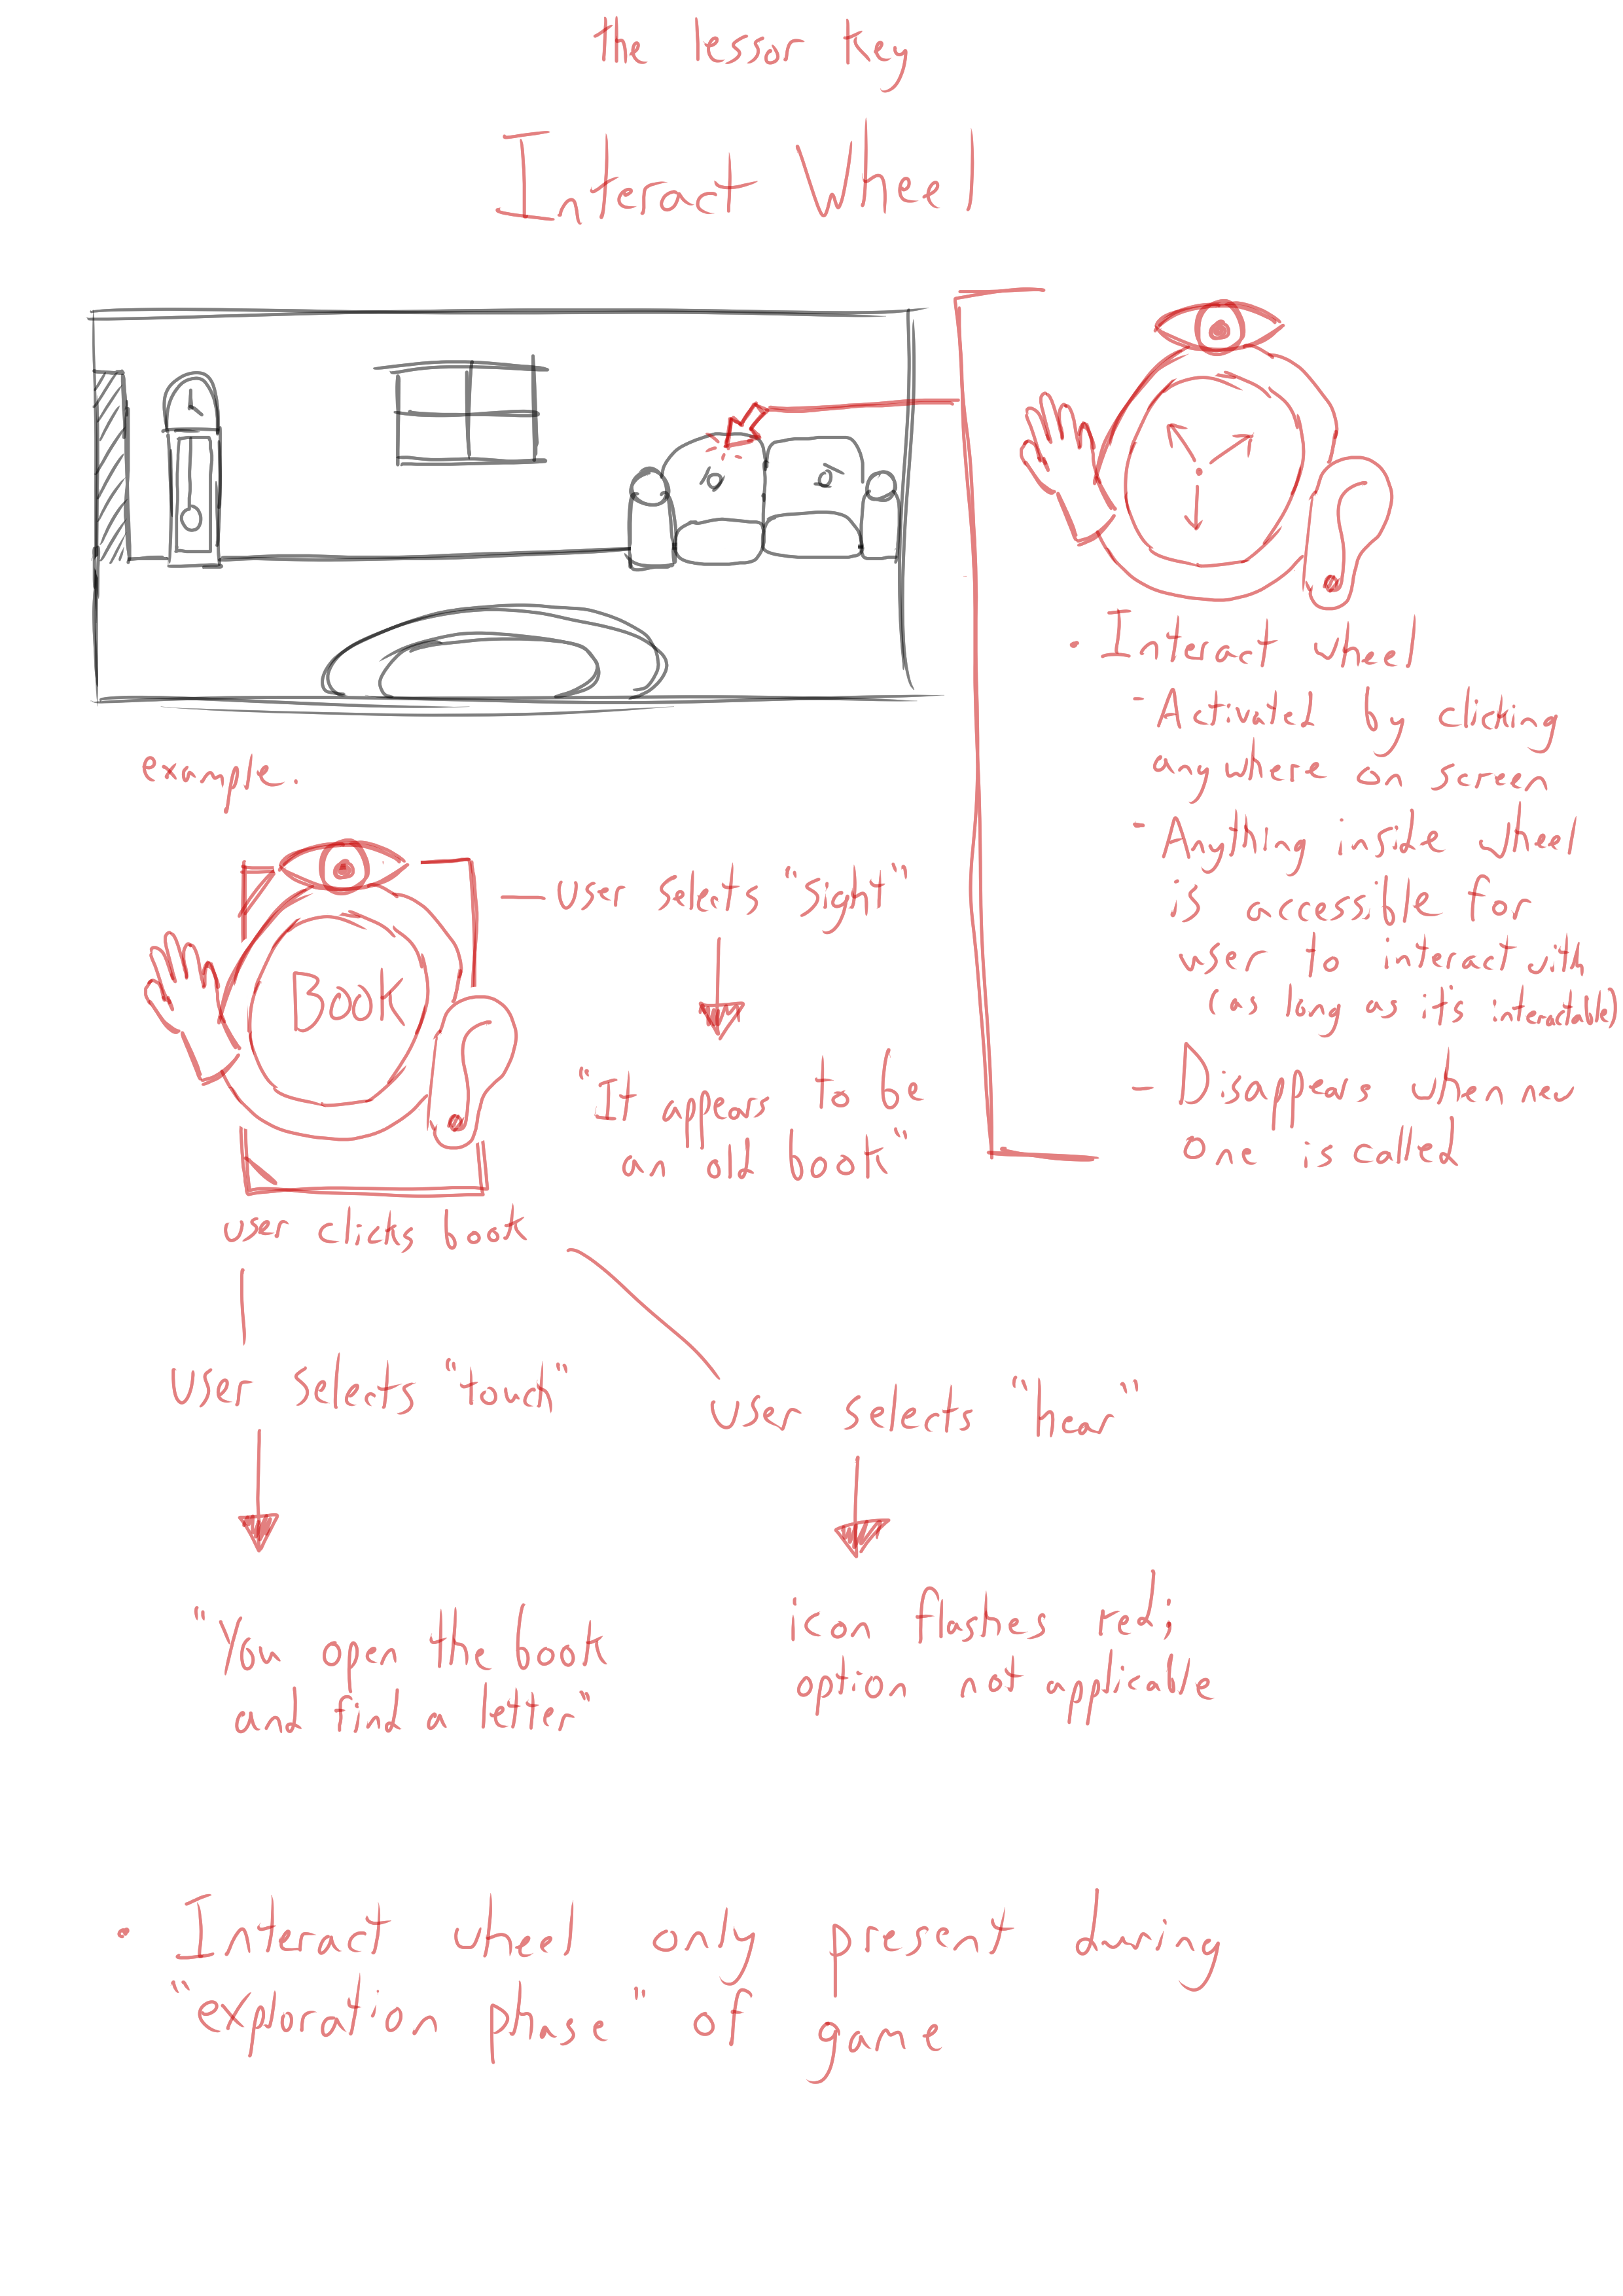 the lessor key
Interact Wheel
• Interact wheel
- Activated by clicking
anywhere on screen
- Anything inside wheel
is accessible for
user to interact with
(as long as it's interactable)
- Disappears when new
one is called
example.
Book
user selects "sight"
"It appears to be
an old book"
user clicks book
user selects "touch"
"You open the book
and find a letter"
user selects "hear"
icon flashes red;
option not applicable
• Interact wheel only present during
"exploration phase" of game